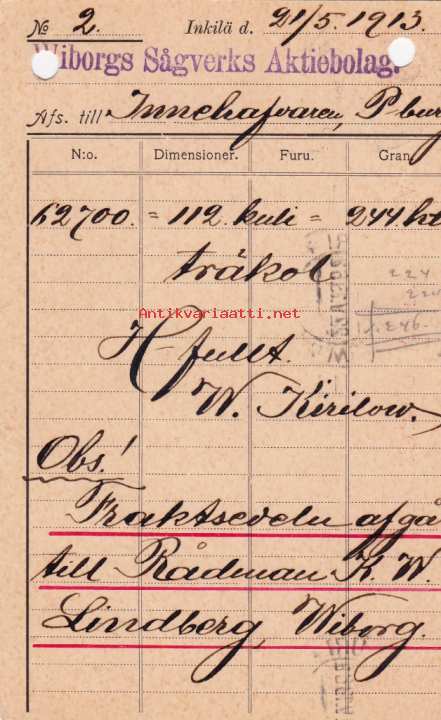 No 2. Inkilä d. 21/5 1913.
Wiborgs Sågverks Aktiebolag.
Afs. till Innehafvaren, P-burg
N:o. Dimensioner. Furu. Gran
62700. = 112 kuli = 244 hl
träkol
Antikvariaatti.net
224
220
246
H-fullt.
W. Kirilow.
Obs!
Fraktsedeln afgå
till Rådman K. W.
Lindberg, Wiborg.